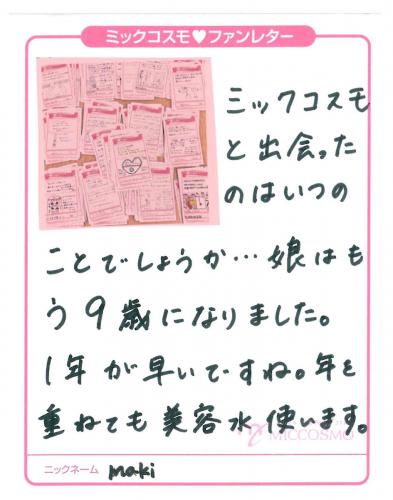 ミックコスモ♥ファンレター
ミックコスモ
と出会った
のはいつの
ことでしょうか…娘はも
う9歳になりました。
1年が早いですね。年を
重ねても美容水使います。
MICCOSMO
ニックネーム maki